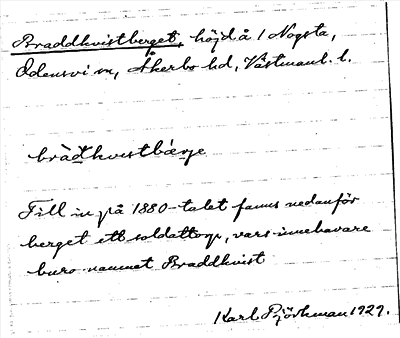 Braddkvistberget, höjd å 1 Nogsta,
Odensvi sn, Åkerbo hd, Västmanl. l.
bràd̄kvistbá̀rje
Till in på 1880-talet fanns nedanför
berget ett soldattorp, vars innehavare
buro namnet Braddkvist
Karl Björkman 1929.